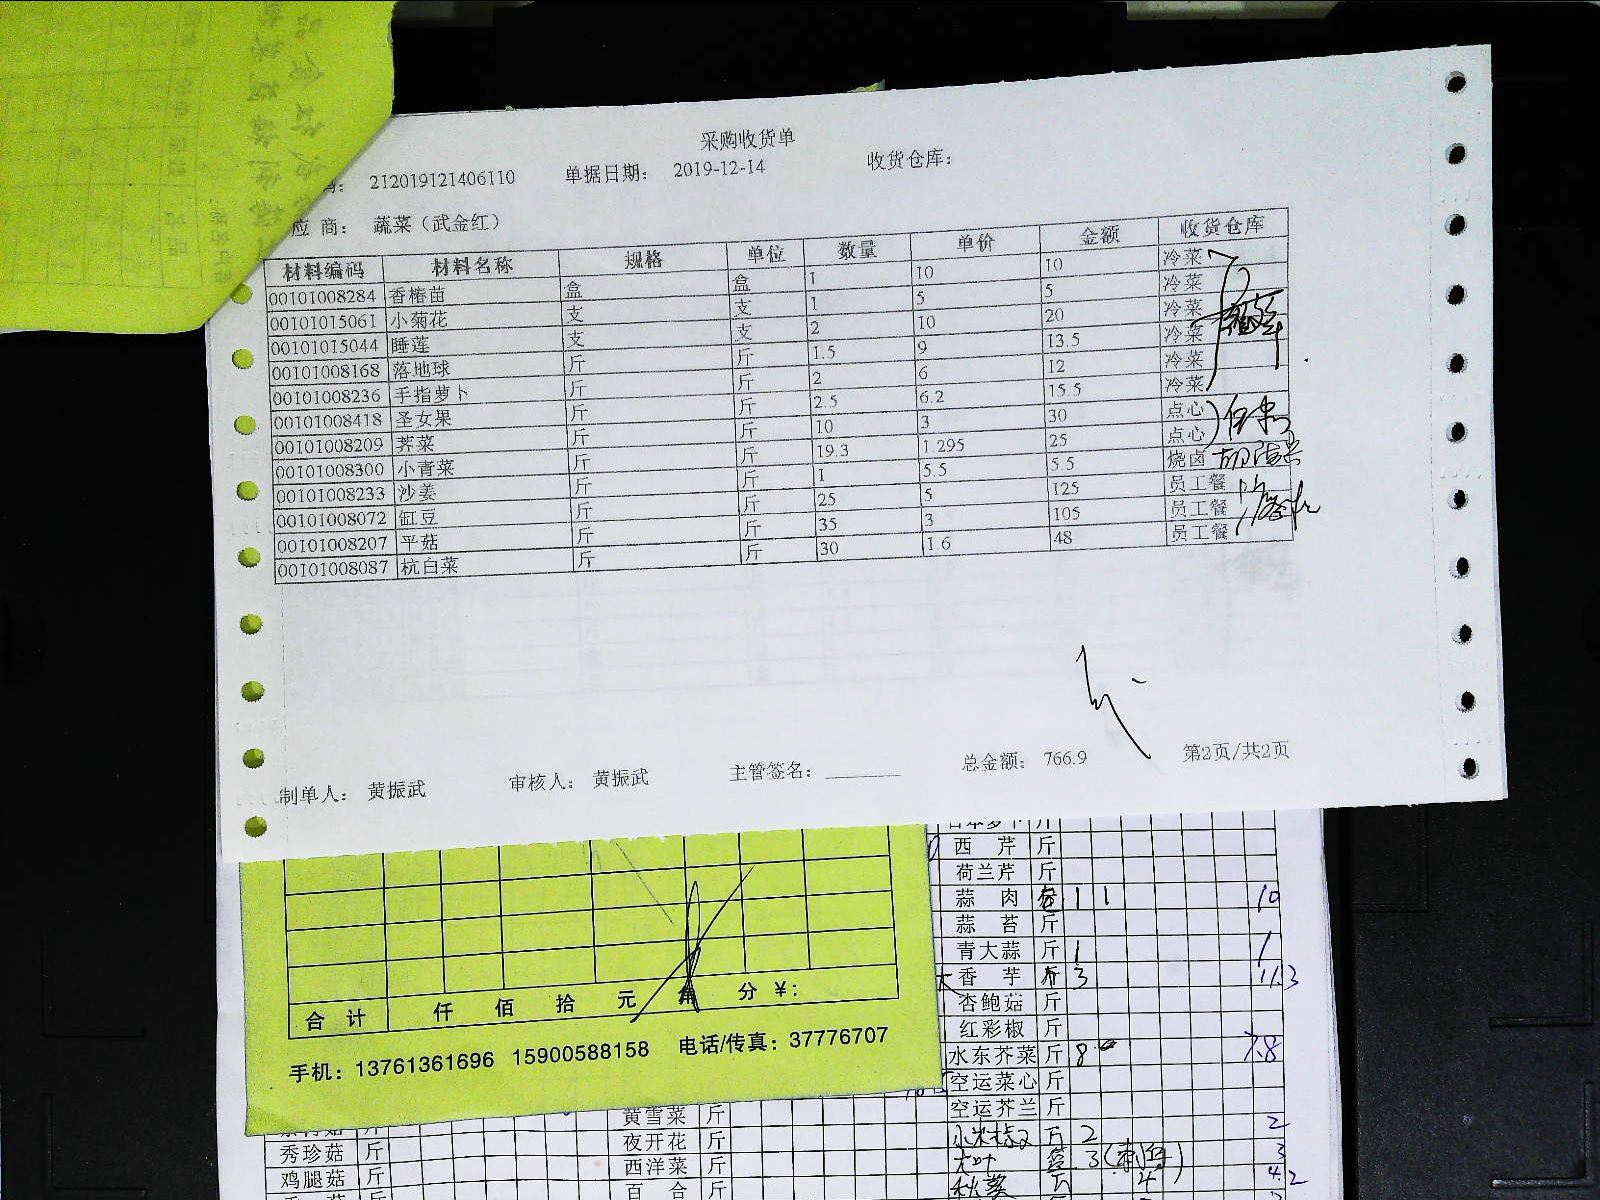 采购收货单
212019121406110 单据日期: 2019-12-14 收货仓库:
应 商: 蔬菜（武金红）
材料编码 材料名称 规格 单位 数量 单价 金额 收货仓库
00101008284 香椿苗 盒 盒 1 10 10 冷菜
00101015061 小菊花 支 支 1 5 5 冷菜
00101015044 睡莲 支 支 2 10 20 冷菜
00101008168 落地球 斤 斤 1.5 9 13.5 冷菜
00101008236 手指萝卜 斤 斤 2 6 12 冷菜
00101008418 圣女果 斤 斤 2.5 6.2 15.5 冷菜
00101008209 荠菜 斤 斤 10 3 30 点心
00101008300 小青菜 斤 斤 19.3 1.295 25 点心
00101008233 沙姜 斤 斤 1 5.5 5.5 烧卤
00101008072 缸豆 斤 斤 25 5 125 员工餐
00101008207 平菇 斤 斤 35 3 105 员工餐
00101008087 杭白菜 斤 斤 30 1.6 48 员工餐
制单人: 黄振武 审核人: 黄振武 主管签名: 总金额: 766.9 第2页/共2页
西芹 斤
荷兰芹 斤
蒜肉 1 1 10
蒜苔 斤
青大蒜 斤 1 1
香芋 斤 3 11.3
杏鲍菇 斤
红彩椒 斤
水东芥菜 斤 8 7.8
空运菜心 斤
空运芥兰 斤
小米椒 斤 2 2
大叶 3 3
秋葵 斤 4 4.2
合计 仟 佰 拾 元 角 分 ¥:
手机: 13761361696 15900588158 电话/传真: 37776707
黄雪菜 斤
秀珍菇 斤 夜开花 斤
鸡腿菇 斤 西洋菜 斤
百合 斤